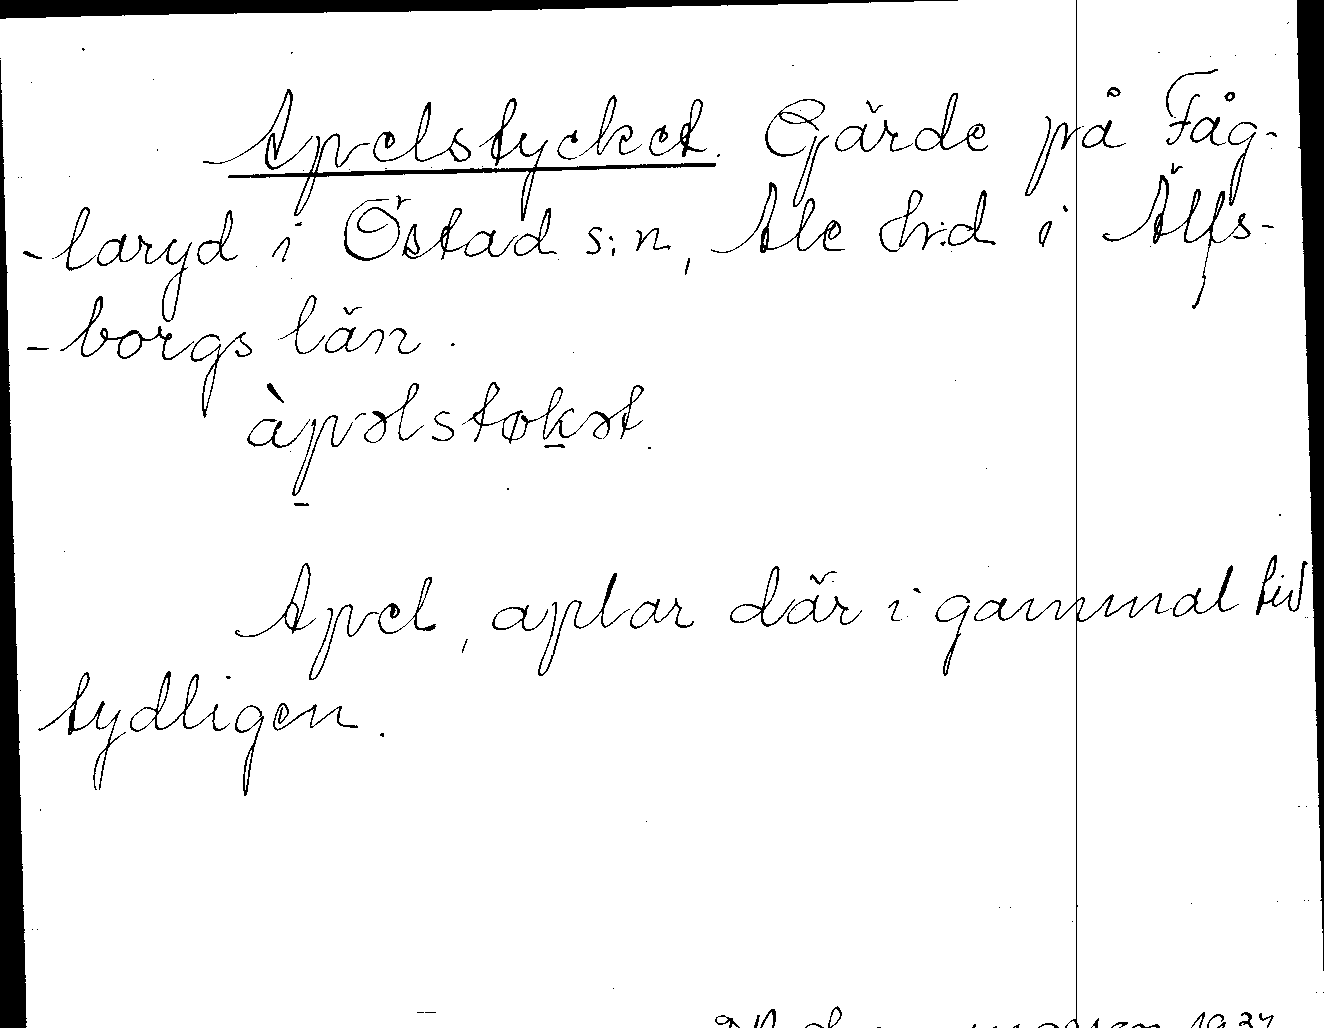 Apelstycket. Gärde på Fåg-
-laryd i Östad s:n, Ale h:d i Älfs-
-borgs län.
àpəlstøkət.
Apel, aplar där i gammal tid
tydligen.
1937